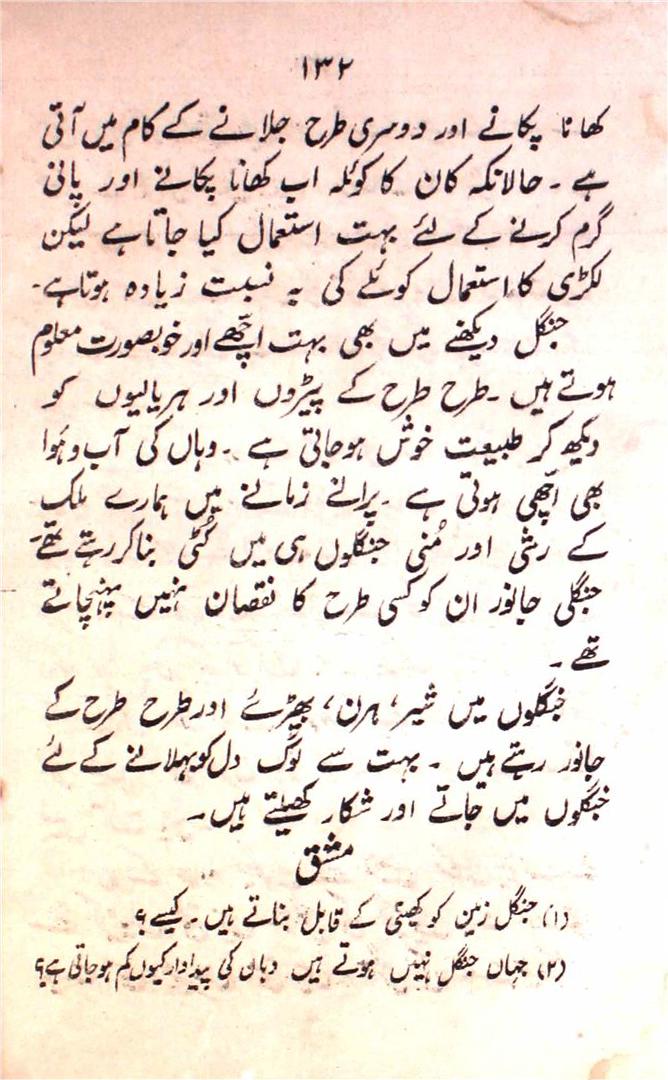 ۱۳۲
کھانا پکانے اور دوسری طرح جلانے کے کام میں آتی
ہے ۔ حالانکہ کان کا کوئلہ اب کھانا پکانے اور پانی
گرم کرنے کے لئے بہت استعمال کیا جاتا ہے لیکن
لکڑی کا استعمال کوئلے کی بہ نسبت زیادہ ہوتا ہے۔
جنگل دیکھنے میں بھی بہت اچھّے اور خوبصورت معلوم
ہوتے ہیں ۔ طرح طرح کے پیڑوں اور ہریالیوں کو
دیکھ کر طبیعت خوش ہو جاتی ہے ۔ وہاں کی آب و ہَوا
بھی اچّھی ہوتی ہے ۔ پرانے زمانے میں ہمارے ملک
کے رشی اور مُنی جنگلوں ہی میں کُٹی بنا کر رہتے تھے۔
جنگلی جانور ان کو کسی طرح کا نقصان نہیں پہنچاتے
تھے ۔
جنگلوں میں شیر، ہرن، بھیڑئے اور طرح طرح کے
جانور رہتے ہیں ۔ بہت سے لوگ دل کو بہلانے کے لئے
جنگلوں میں جاتے اور شکار کھیلتے ہیں۔
مشق
(۱) جنگل زمین کو کھیتی کے قابل بناتے ہیں ۔ کیسے ؟
(۲) جہاں جنگل نہیں ہوتے ہیں وہاں کی پیداوار کیوں کم ہو جاتی ہے؟